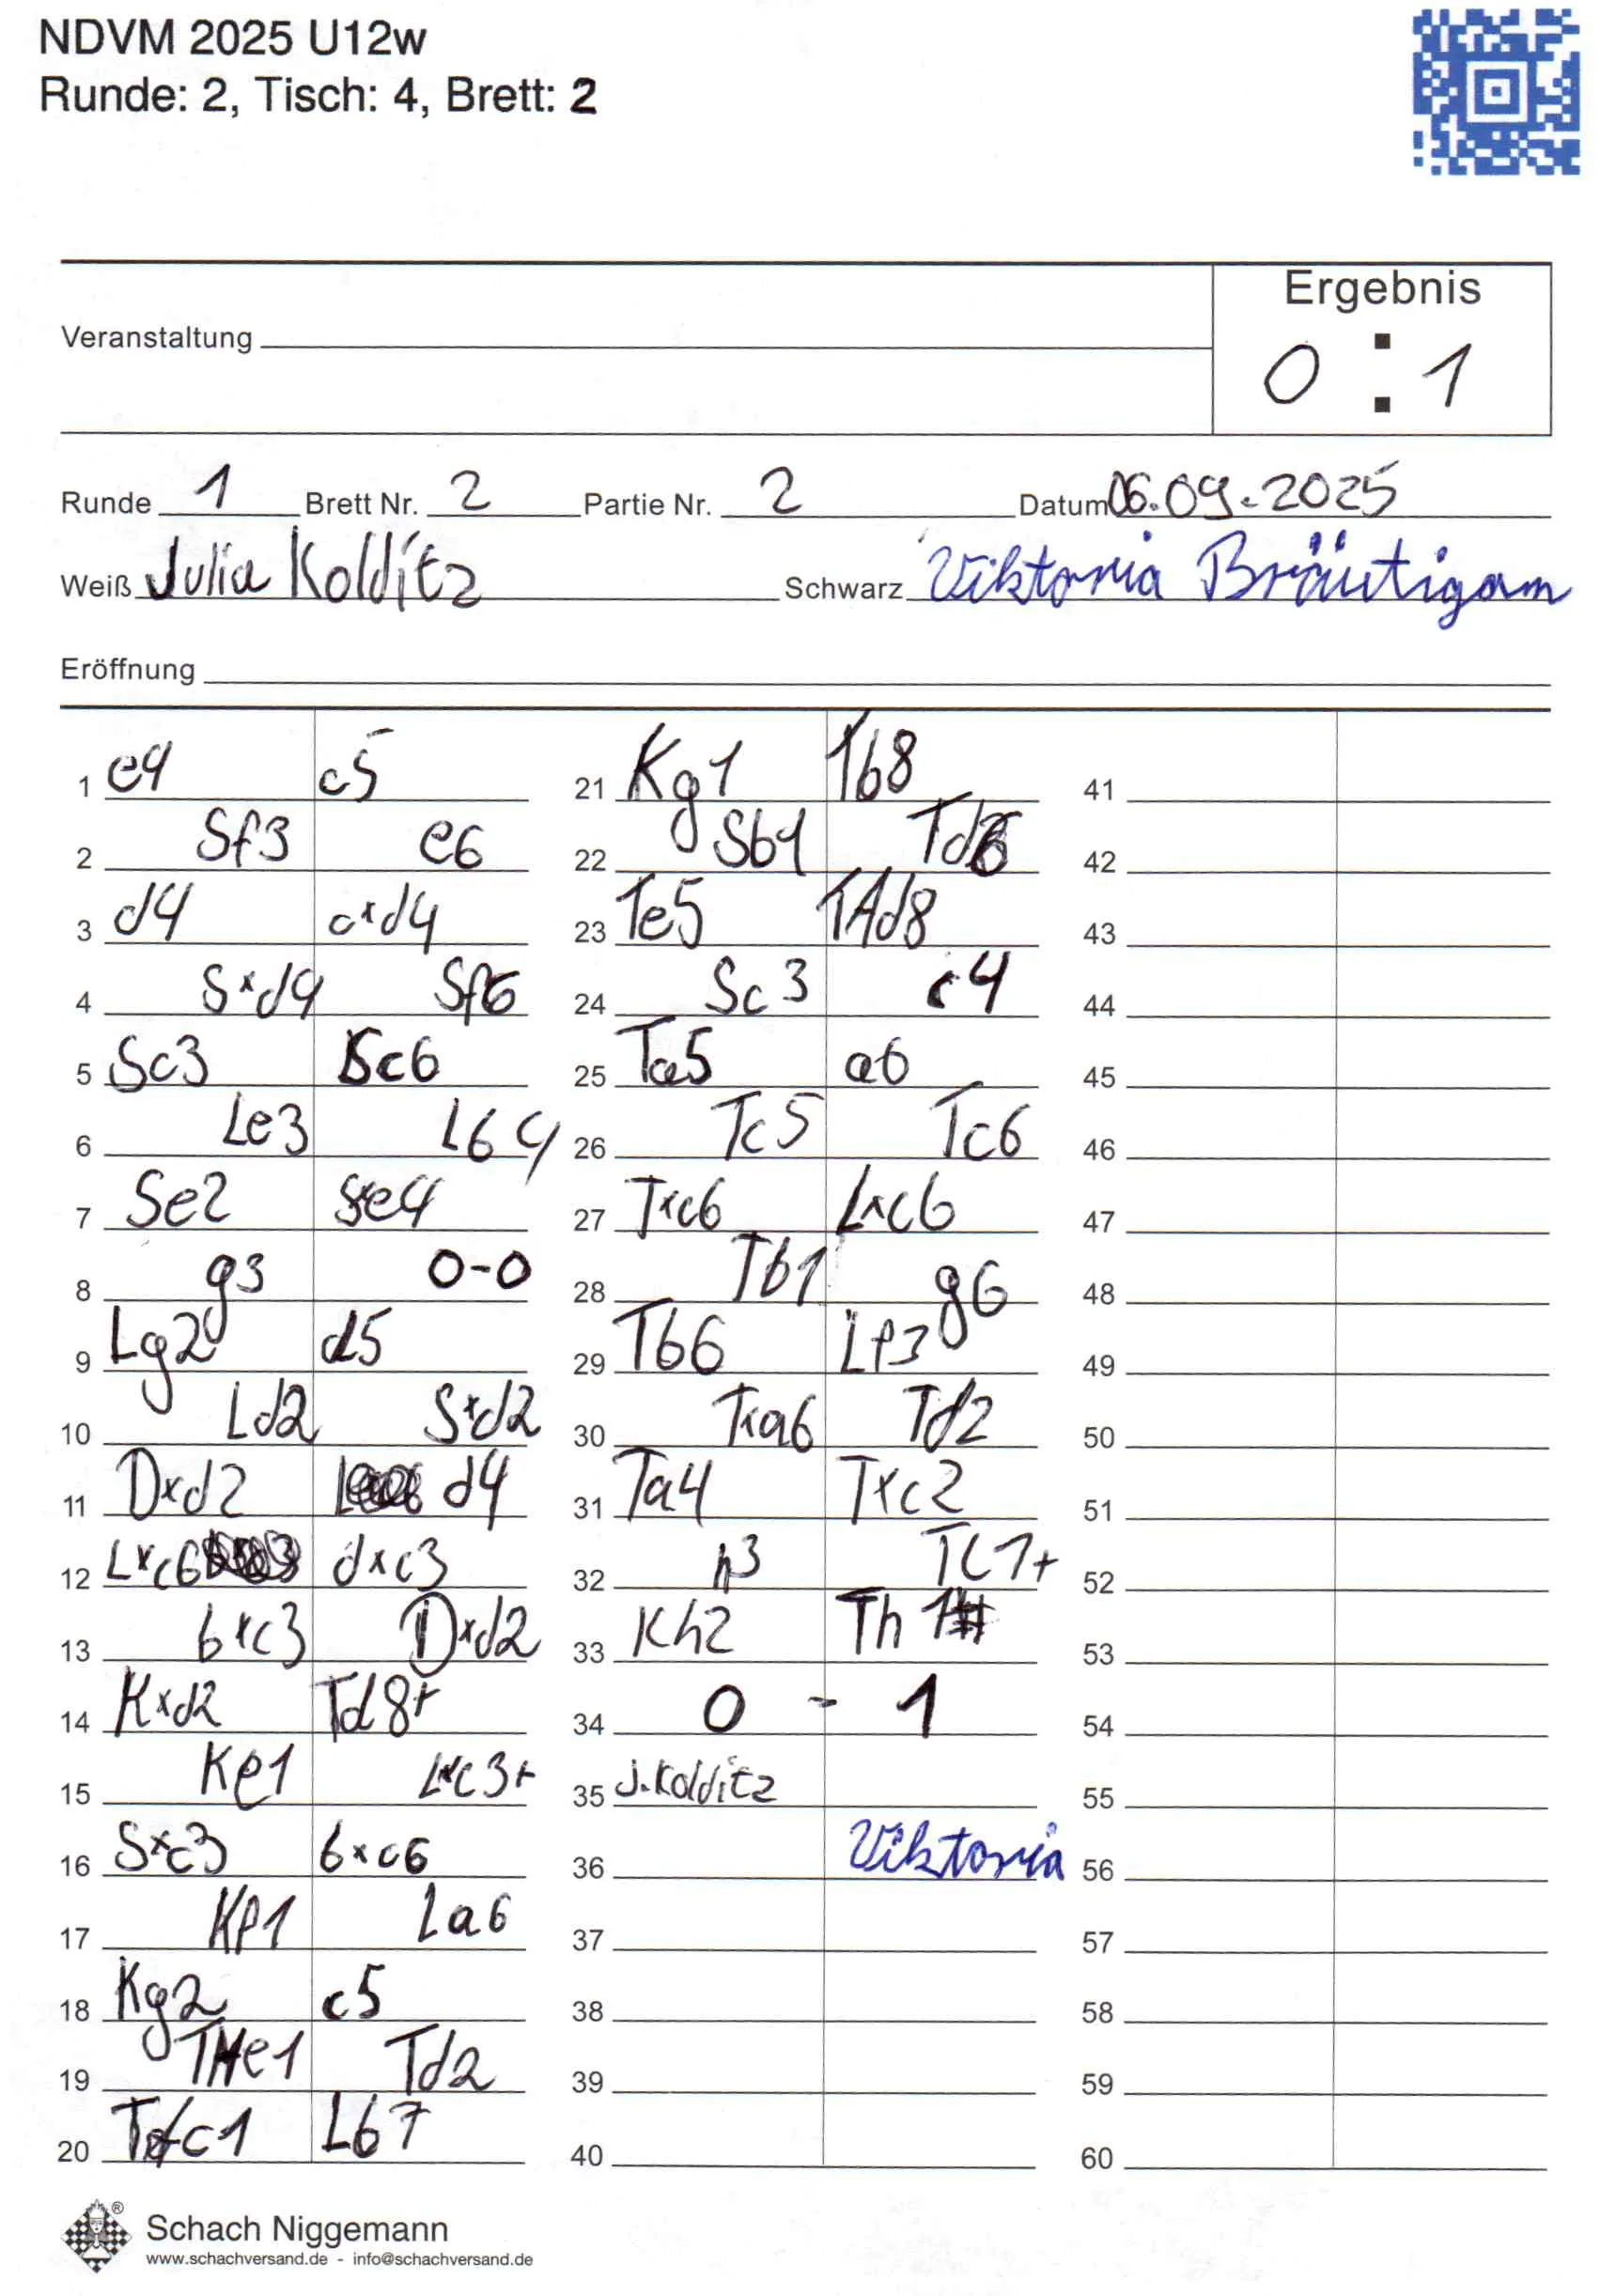 NDVM 2025 U12w
Runde: 2, Tisch: 4, Brett: 2
Ergebnis
0 : 1
Veranstaltung
Runde 1 Brett Nr. 2 Partie Nr. 2 Datum 06.09.2025
Weiß Julia Kolditz Schwarz Viktoria Bräutigam
Eröffnung
1 e4 c5 21 Kg1 Tb8 41
2 Sf3 e6 22 Sb1 Td6 42
3 d4 cxd4 23 Te5 TAd8 43
4 Sxd4 Sf6 24 Sc3 c4 44
5 Sc3 Sc6 25 Ta5 a6 45
6 Le3 Lb4 26 Tc5 Tc6 46
7 Se2 Sxe4 27 Txc6 Lxc6 47
8 g3 0-0 28 Tb1 g6 48
9 Lg2 d5 29 Tb6 Lf3 49
10 Ld2 Sxd2 30 Txa6 Td2 50
11 Dxd2 d4 31 Ta4 Txc2 51
12 Lxc6 dxc3 32 h3 Tc1+ 52
13 bxc3 Dxd2 33 Kh2 Th1# 53
14 Kxd2 Td8+ 34 0 - 1 54
15 Ke1 Lxc3+ 35 J.Kolditz 55
16 Sxc3 bxc6 36 Viktoria 56
17 Kf1 La6 37 57
18 Kg2 c5 38 58
19 THe1 Td2 39 59
20 Tc1 Lb7 40 60
®
Schach Niggemann
www.schachversand.de - info@schachversand.de